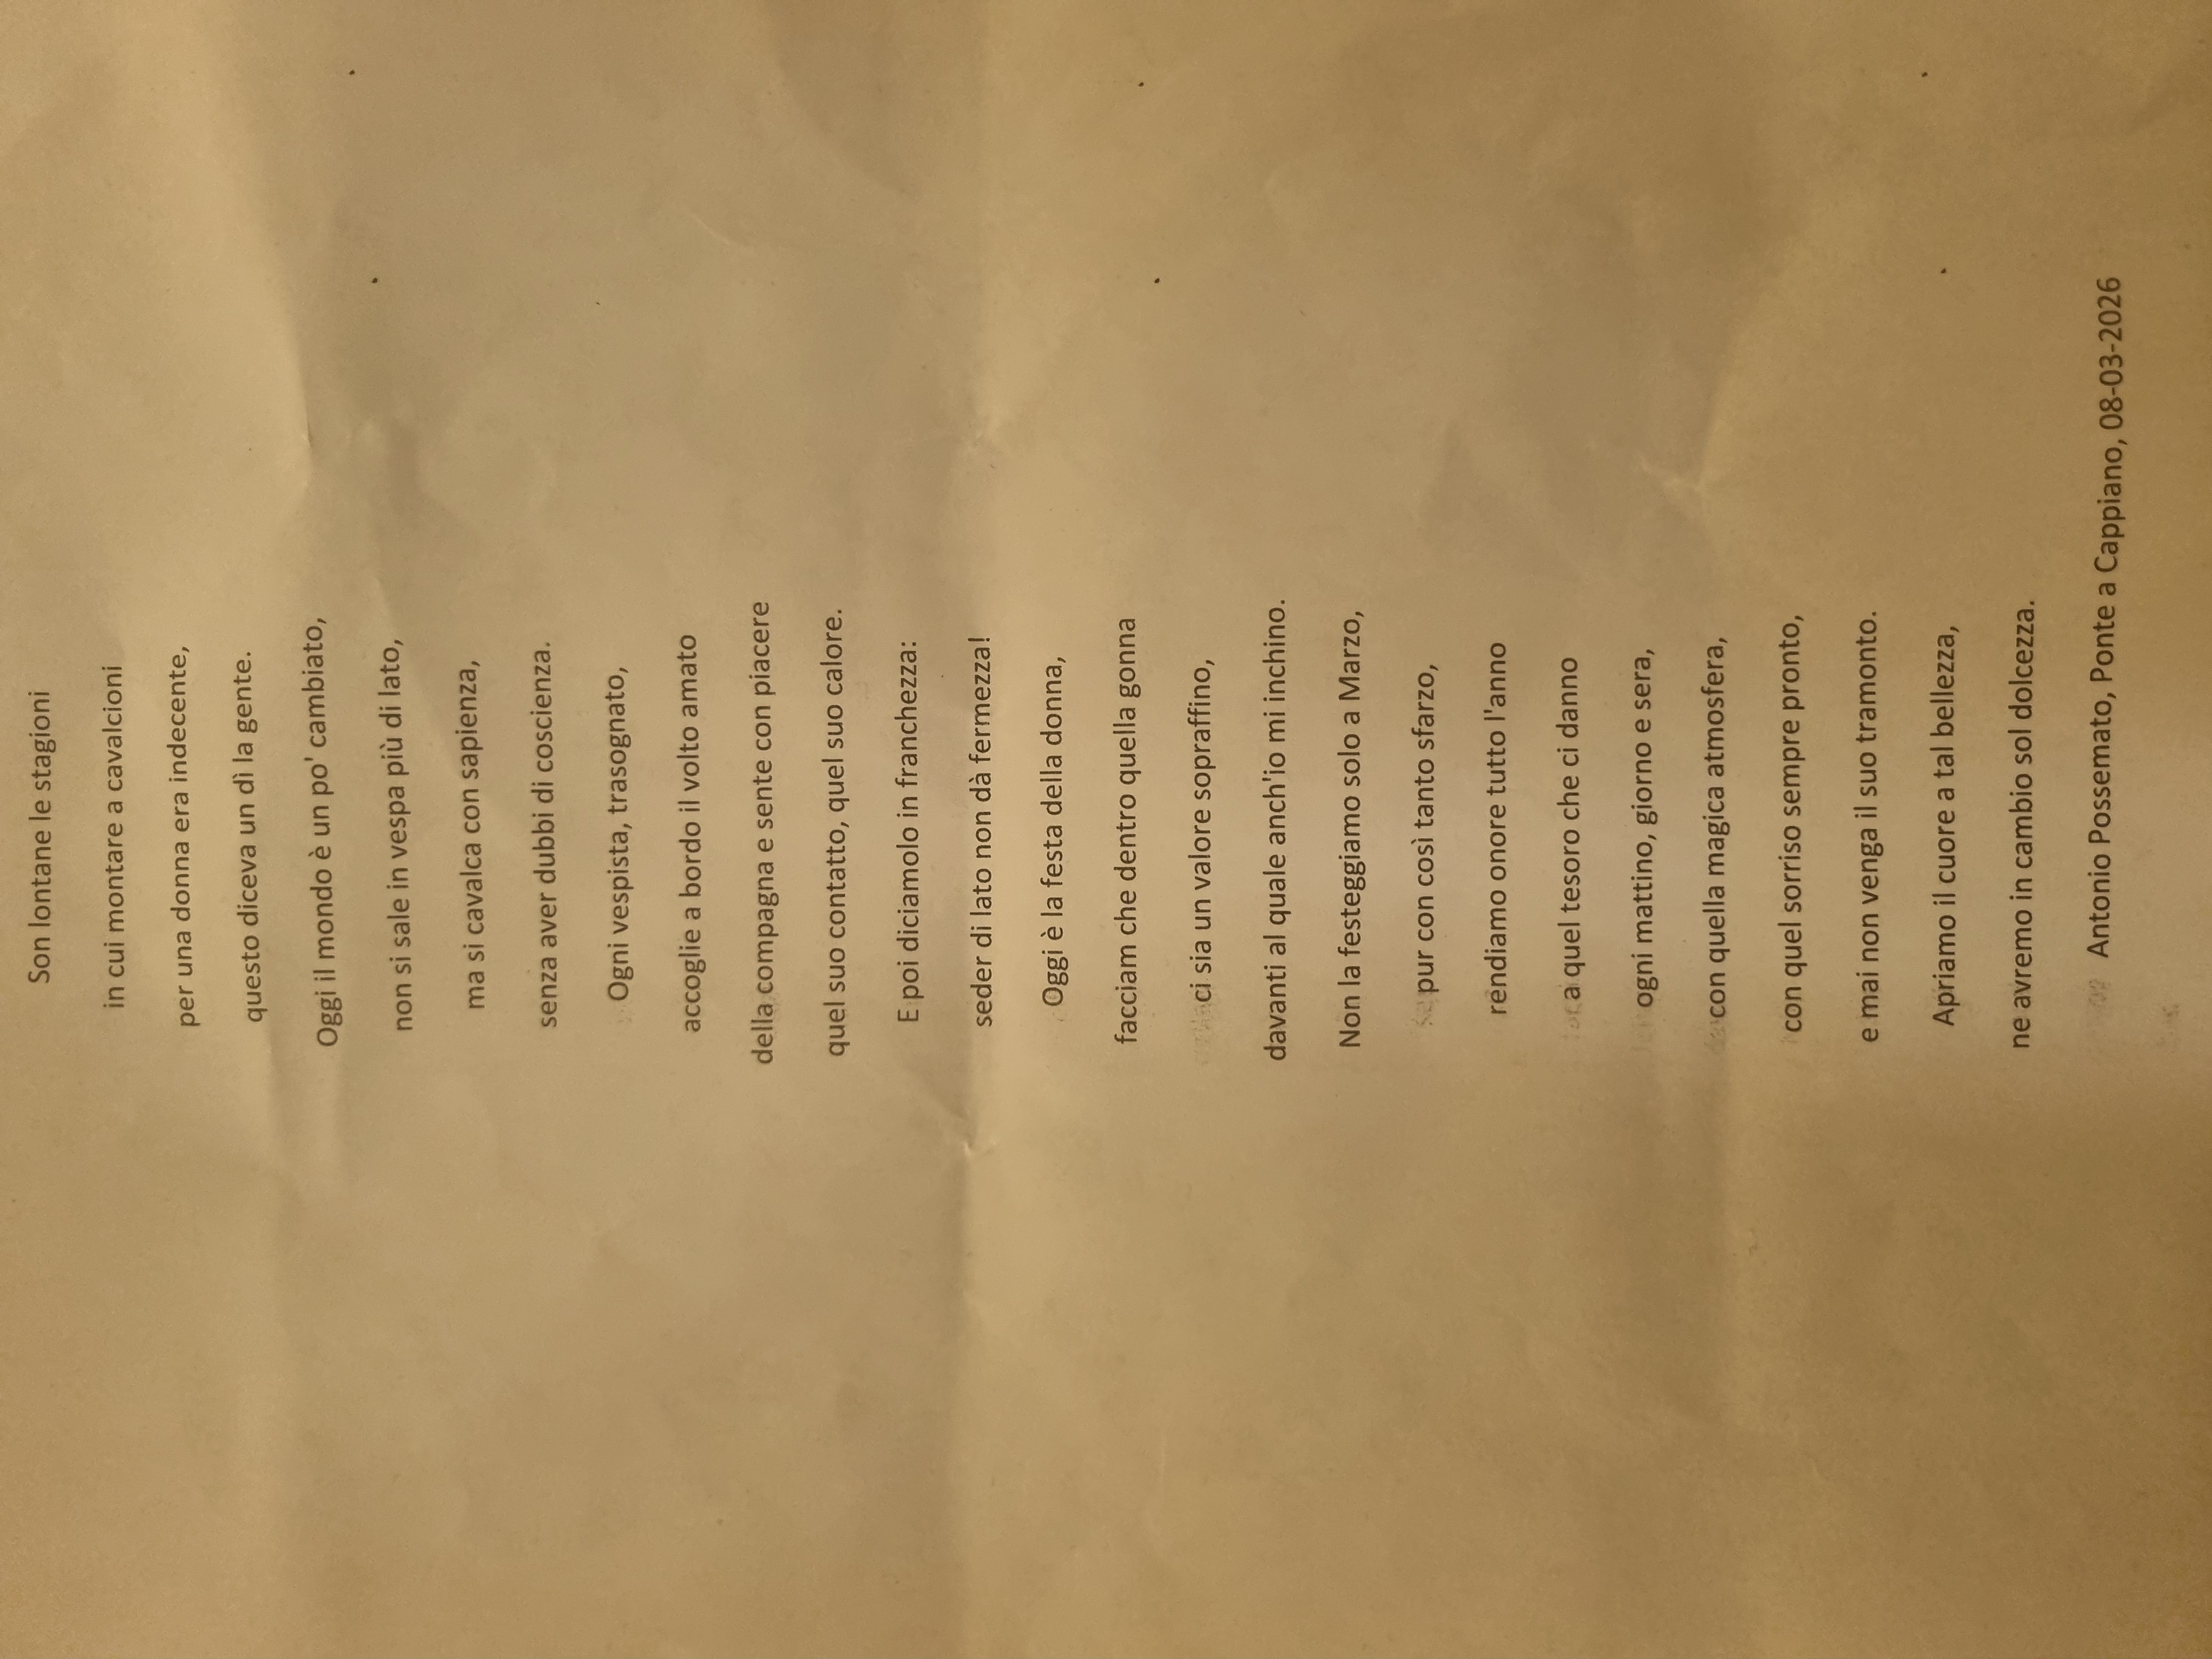 Son lontane le stagioni
in cui montare a cavalcioni
per una donna era indecente,
questo diceva un dì la gente.
Oggi il mondo è un po' cambiato,
non si sale in vespa più di lato,
ma si cavalca con sapienza,
senza aver dubbi di coscienza.
Ogni vespista, trasognato,
accoglie a bordo il volto amato
della compagna e sente con piacere
quel suo contatto, quel suo calore.
E poi diciamolo in franchezza:
seder di lato non dà fermezza!
Oggi è la festa della donna,
facciam che dentro quella gonna
ci sia un valore sopraffino,
davanti al quale anch'io mi inchino.
Non la festeggiamo solo a Marzo,
pur con così tanto sfarzo,
rendiamo onore tutto l'anno
a quel tesoro che ci danno
ogni mattino, giorno e sera,
con quella magica atmosfera,
con quel sorriso sempre pronto,
e mai non venga il suo tramonto.
Apriamo il cuore a tal bellezza,
ne avremo in cambio sol dolcezza.
Antonio Possemato, Ponte a Cappiano, 08-03-2026